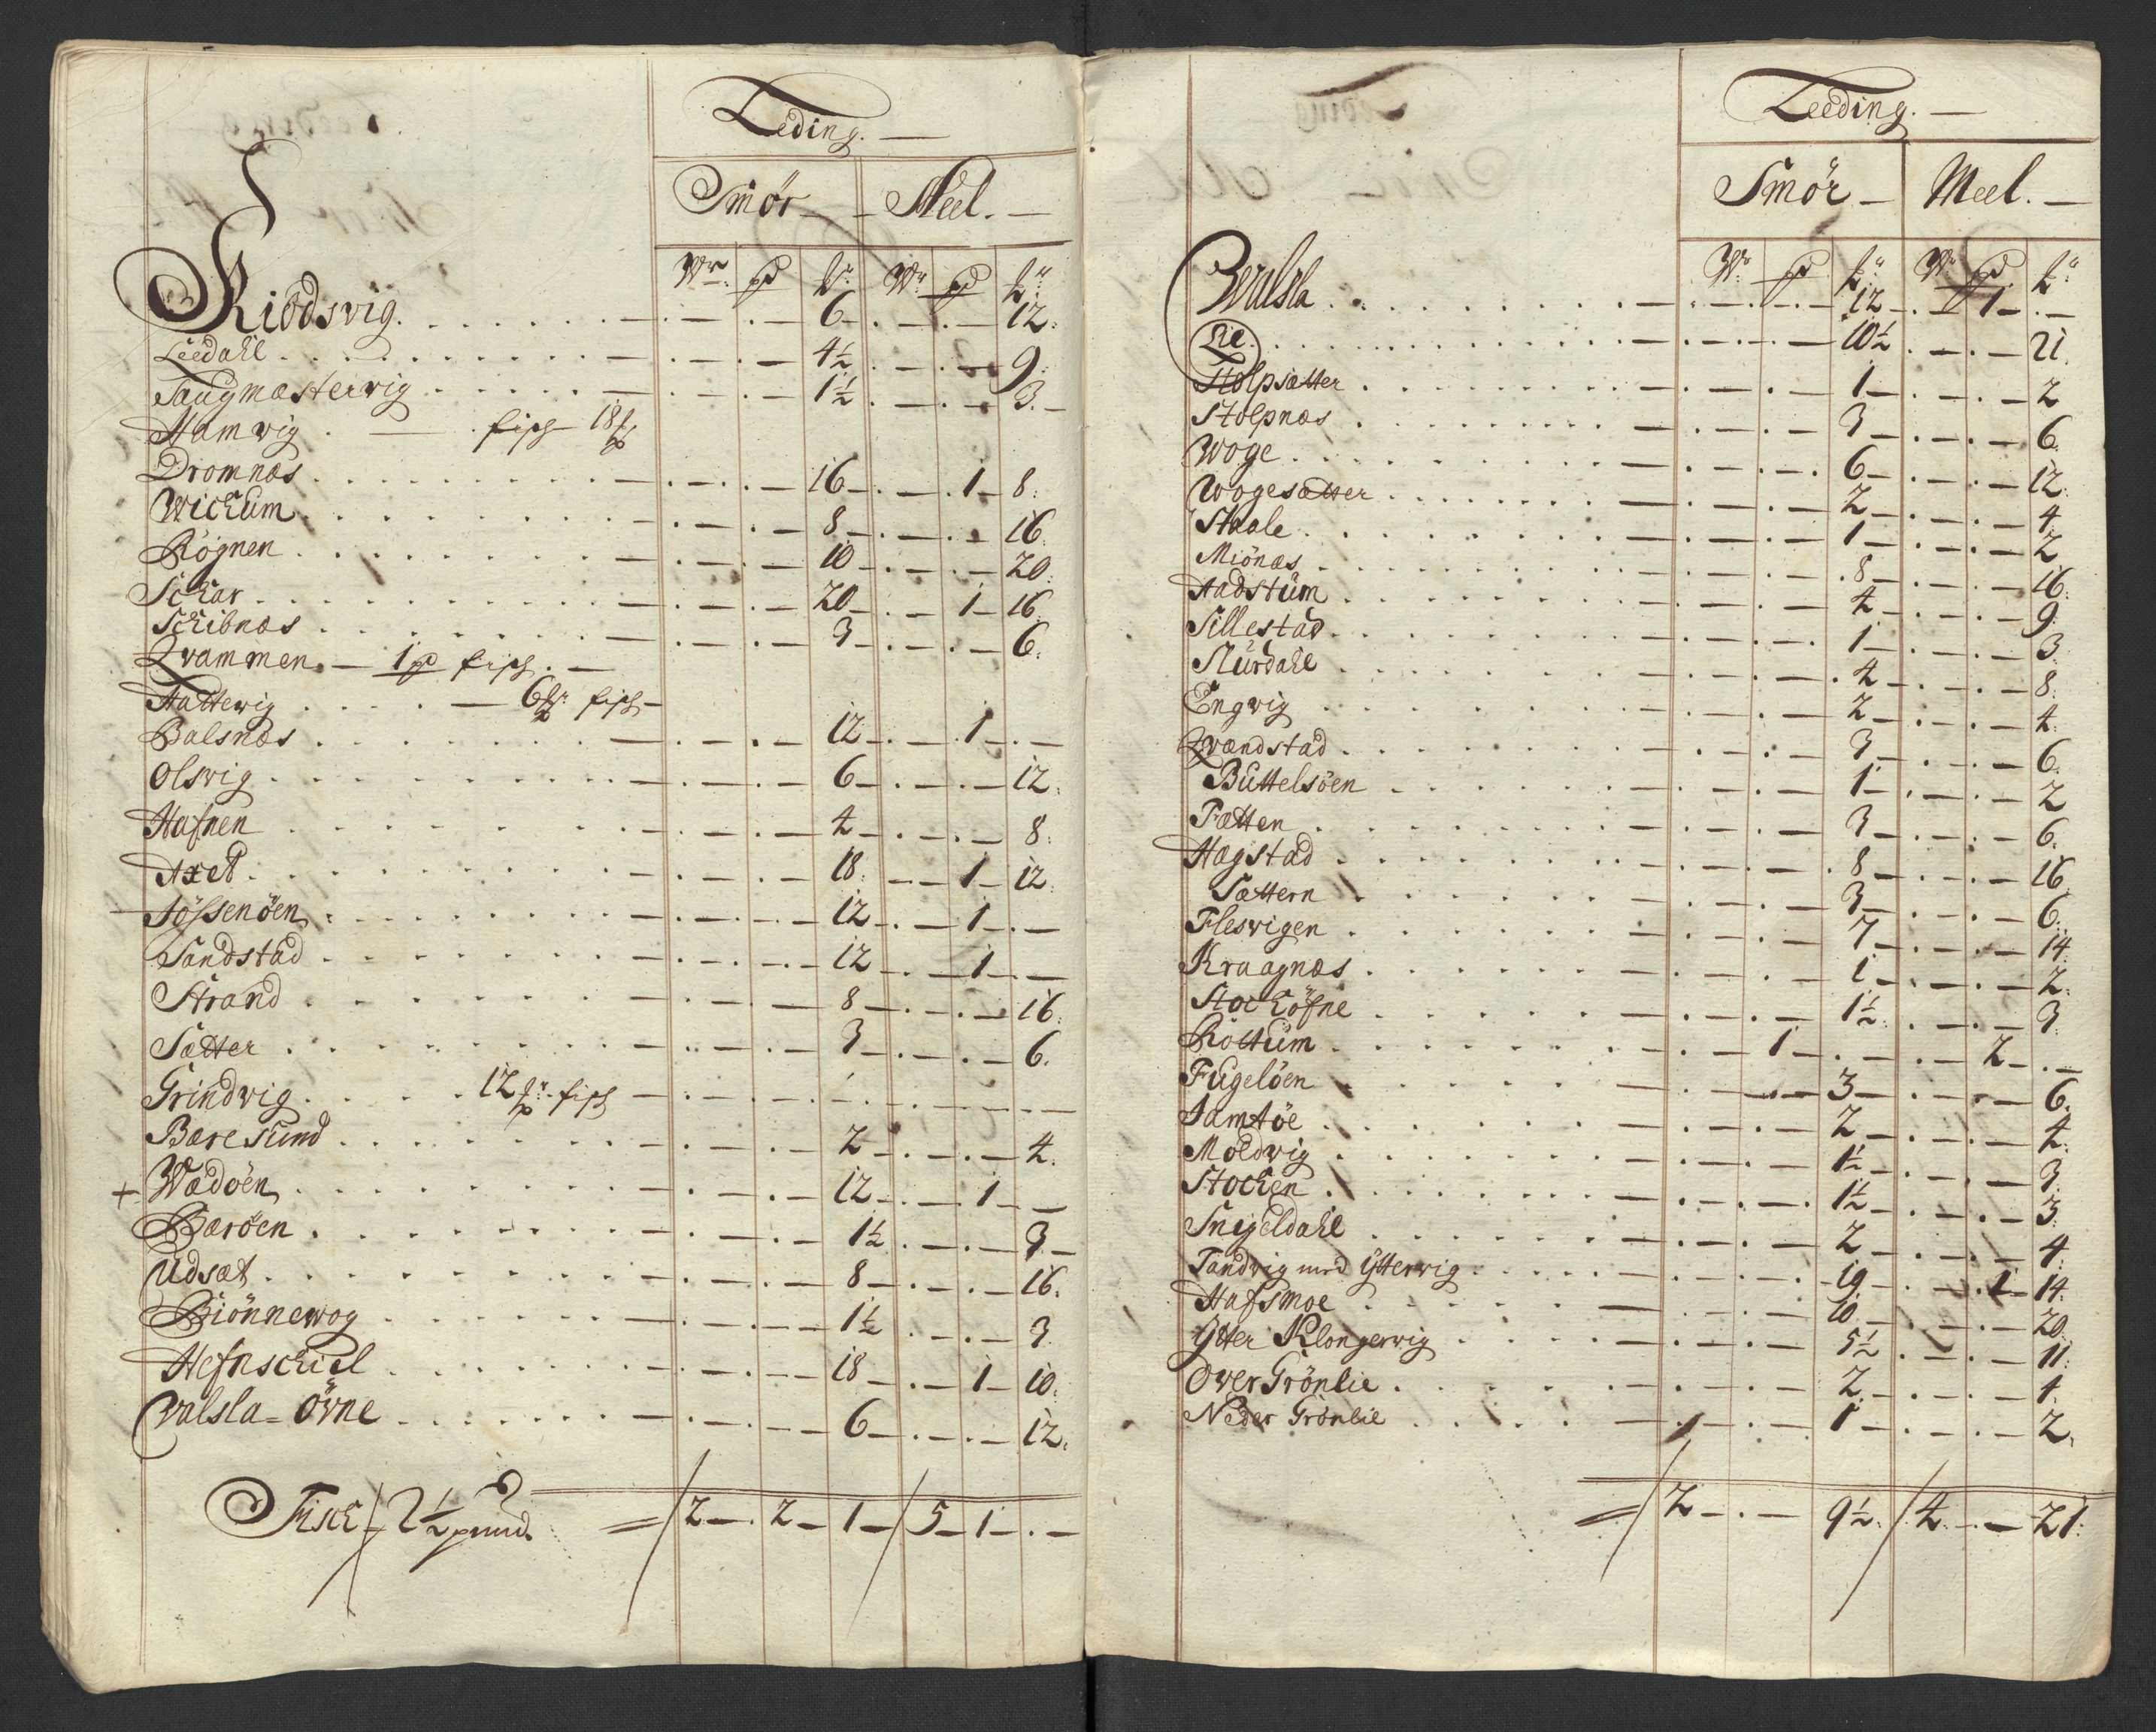 Leding. —
Smör — Meel. —
Wr. pd lr. Wr pd lr
Skiödsvig . . . . . . — . — . — 6 — . — . — 12:
Leedahl . . . . . . — . — . — 4½ — . — . — 9:
Taugmæstervig . . . . . — . — . — 1½ — . — . — 3. —
Hamvig . — fisch 18 lr
Dromnæs . . . . . . — . — . — 16 — . — . 1 — 8:
Wichum . . . . . . — . — . — 8 — . — . — 16.
Rögnen . . . . . . — . — . — 10 — . — . — 20:
Schar . . . . . . — . — . — 20 — . — 1 — 16.
Schibnæs . . . . . . — . — . — 3 — . — . — 6.
Qvammen. — 1 pd fisch. —
Hattevig . . . . — 6 lr. fisch —
Balsnæs . . . . . . — . — . — 12 — . — 1 — . —
Olsvig . . . . . . — . — . — 6 — . — . — 12:
Hafnen . . . . . . — . — . — 4 — . — . — 8:
Axet . . . . . . — . — . — 18. — — 1 — 12:
Jössenöen . . . . . . — . — . — 12 — . — 1 — . —
Sandstad . . . . . . — . — . — 12 — . — 1 — . —
Strand . . . . . . — . — . — 8 — . — . — 16:
Sætter . . . . . . — . — . — 3 — . — . — 6.
Grindvig . . . . 12 lr. fisch — . — . — . — . — . — . —
Bæresund . . . . . . — . — . — 2 — . — . — 4.
+ Wædöen . . . . . . — . — . — 12 — . — 1 — . —
Bæröen . . . . . . — . — . — 1½ . — . — 3 —
Udsæt . . . . . . — . — . — 8 — . — . — 16.
Biönnewog . . . . . . — . — . — 1½ . — . — 3.
Hefnschiel . . . . . . — . — . — 18 — . — 1 — 10:
Valsla-övne . . . . . . — . — . — 6 — . — . — 12.
Fisch 2½ pund. = 2 — . 2 — 1 — 5 — 1 — . —
Leeding. —
Smör — Meel. —
Wr pd lr Wr pd lr
Walsla . . . . . . — . — . — 12 — . — 1 — . —
Lie . . . . . . — . — . — 10½ . — . — 21.
Stolpsætter . . . . . . — . — . — 1 — . — . — 2
Stolpnæs . . . . . . — . — . — 3 — . — . — 6.
Woge . . . . . . — . — . — 6 — . — . — 12.
Wogesætter . . . . . . — . — . — 2 — . — . — 4.
Staale . . . . . . — . — . — 1 — . — . — 2
Miönæs . . . . . . — . — . 8 — . — . — 16.
Aadstum . . . . . . — . — . — 4 — . — . — 9.
Sillestad . . . . . . — . — . — 1 — . — . — 3.
Slurdahl . . . . . . — . — . 4 — . — . — 8.
Engvig . . . . . . — . — . — 2 — . — . — 4.
Qvændstad . . . . . . — . — . — 3 — . — . — 6.
Buttelsöen . . . . . . — . — . — 1 — . — . — 2
Fætten . . . . . . — . — . — 3 — . — . — 6.
Hægstad . . . . . . — . — . 8 — . — . — 16.
Sættern . . . . . . — . — . — 3 — . — . — 6.
Flesvigen . . . . . . — . — . — 7 — . — . — 14.
Kraagnæs . . . . . . — . — . — 1 — . — . — 2.
Stochöfne . . . . . . — . — . — 1½ . — . — 3.
Röttum . . . . . . — . 1 — . — . 2 — . —
Fugelöen . . . . . . — . — . — 3 — . — . — 6.
Jamtöe . . . . . . — . — . — 2 — . — . — 4.
Moldvig . . . . . . — . — . — 1½ — . — . — 3.
Stochen . . . . . . — . — . — 1½ . — . — 3.
Snejeldahl . . . . . . — . — . — 2 — . — . — 4.
Tandvig med Ytterwig . . . . — . — . — 19 — . — 1 — 14.
Hafsmoe . . . . . . — . — . — 10 — . — . — 20.
Ytter Klongervig . . . . — . — . — 5½ . — . — 11.
Over Grönlie . . . . . — . — . — 2 — . — . — 4.
Neder Grönlie . . . . — . — . — 1 — . — . — 2.
= 2 — . — 9½. 4. — . — 21.